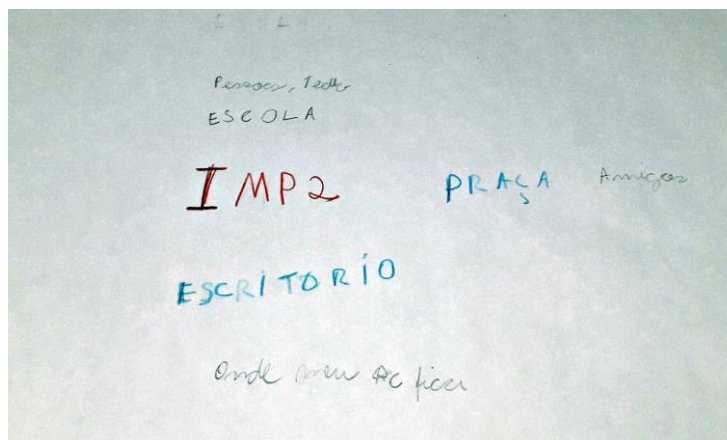 Pessoas, Teatro
ESCOLA
IMP2 PRAÇA Amigos
ESCRITORIO
Onde meu PC fica